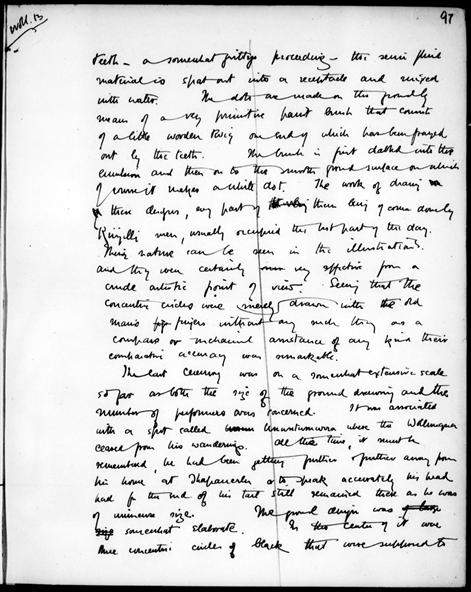 Woll. 13
97
teeth – a somewhat gritty proceeding – the semi fluid
material is spat out into a receptacle and mixed
with water. The dots are made on the ground by
means of a very primitive paint brush that consists
of a little wooden twig one end of which has been frayed
out by the teeth. The brush is first dabbed into the
emulsion and then on to the smooth ground surface on which
of course it makes a white dot. The work of drawing
these designs, any part of them being of course done by
Kingilli men, usually occupied the best part of the day.
Their nature can be seen in the illustrations.
and they were certainly very effective from a
crude artistic point of view. Seeing that the
concentric circles were merely drawn with the old
man's fingers without any such thing as a
compass or mechanical assistance of any kind their
comparative accuracy was remarkable.
The last ceremony was on a somewhat extensive scale
so far as both the size of the ground drawing and the
number of performers was concerned. It was associated
with a spot called where the Wollunqua
ceased from his wanderings. All this time, it must be
remembered, he had been getting further & further away from
his home at Thapauerlu or to speak accurately his head
had for the end of his tail still remained there as he was
of immense size. The ground design was
somewhat elaborate. In the centre of it were
three concentric circles of black that were supposed to